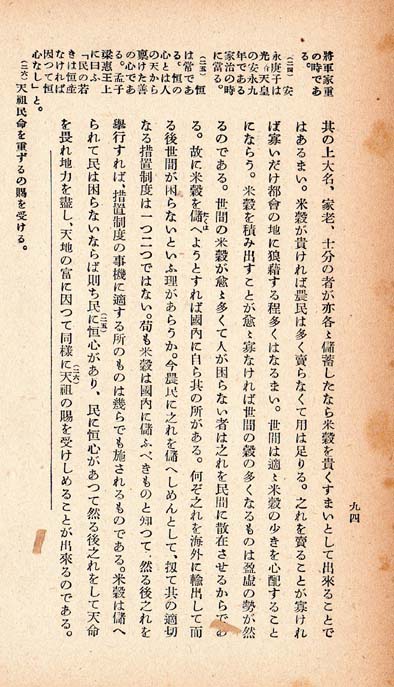 將軍家重
の時であ
る。
(二四) 安
永庚子は
光格天皇
の安永九
年である
家治の時
に當る。
(二五) 恒
は常であ
る。恒の
心とは人
の天から
禀けた善
の心であ
る。孟子
梁惠王上
に曰ふ
「民の若
きは恒産
なければ
因つて恒
心なし」と。
(二六)天祖民命を重ずるの賜を受ける。
九四
其の上大名、家老、士分の者が亦各〻儲蓄したなら米穀を貴くすまいとして出來ることで
はあるまい。米穀が貴ければ農民は多く賣らなくて用は足りる。之れを賣ることが寡けれ
ば寡いだけ都會の地に狼藉する程多くはなるまい。世間は適〻米穀の少きを心配すること
にならう。米穀を積み出すことが愈〻寡なければ世間の穀の多くなるものは盈虛の勢が然
るのである。世間の米穀が愈〻多くて人が困らない者は之れを民間に散在させるからであ
る。故に米穀を儲へようとすれば國內に自ら其の所がある。何ぞ之れを海外に輸出して而
る後世間が困らないといふ理があらうか。今農民に之れを儲へしめんとして、扨て其の適切
なる措置制度は一つ二つではない。苟も米穀は國內に儲ふべきものと知つて、然る後之れを
擧行すれば、措置制度の事機に適する所のものは幾らでも施されるものである。米穀は儲へ
られて民は困らないならば則ち民に恒心があり、民に恒心があつて然る後之れをして天命
を畏れ地力を盡し、天地の富に因つて同樣に天祖の賜を受けしめることが出來るのである。